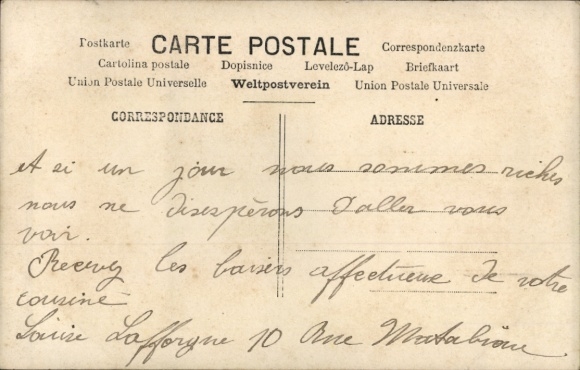 Postkarte CARTE POSTALE Correspondenzkarte
Cartolina postale Dopisnice Levelezö-Lap Briefkaart
Union Postale Universelle Weltpostverein Union Postale Universale
CORRESPONDANCE ADRESSE
et si un jour nous sommes riches
nous ne disespérons d'aller vous
voir.
Recevez les baisers affectueux de votre
cousine
Louise Lafforgue 10 Rue Matabiau